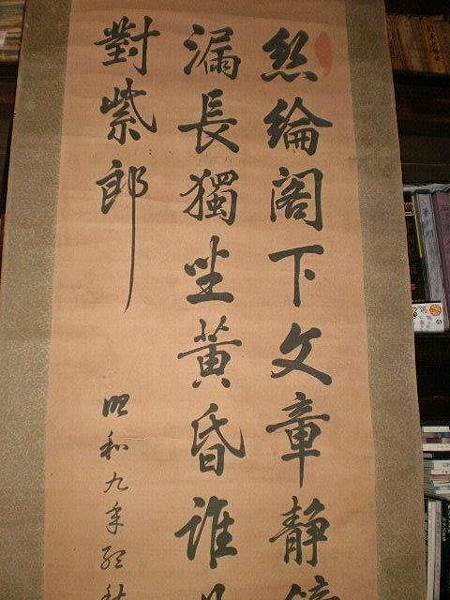 絲綸閣下文章静
漏長獨坐黄昏誰
對紫郎
昭和九年